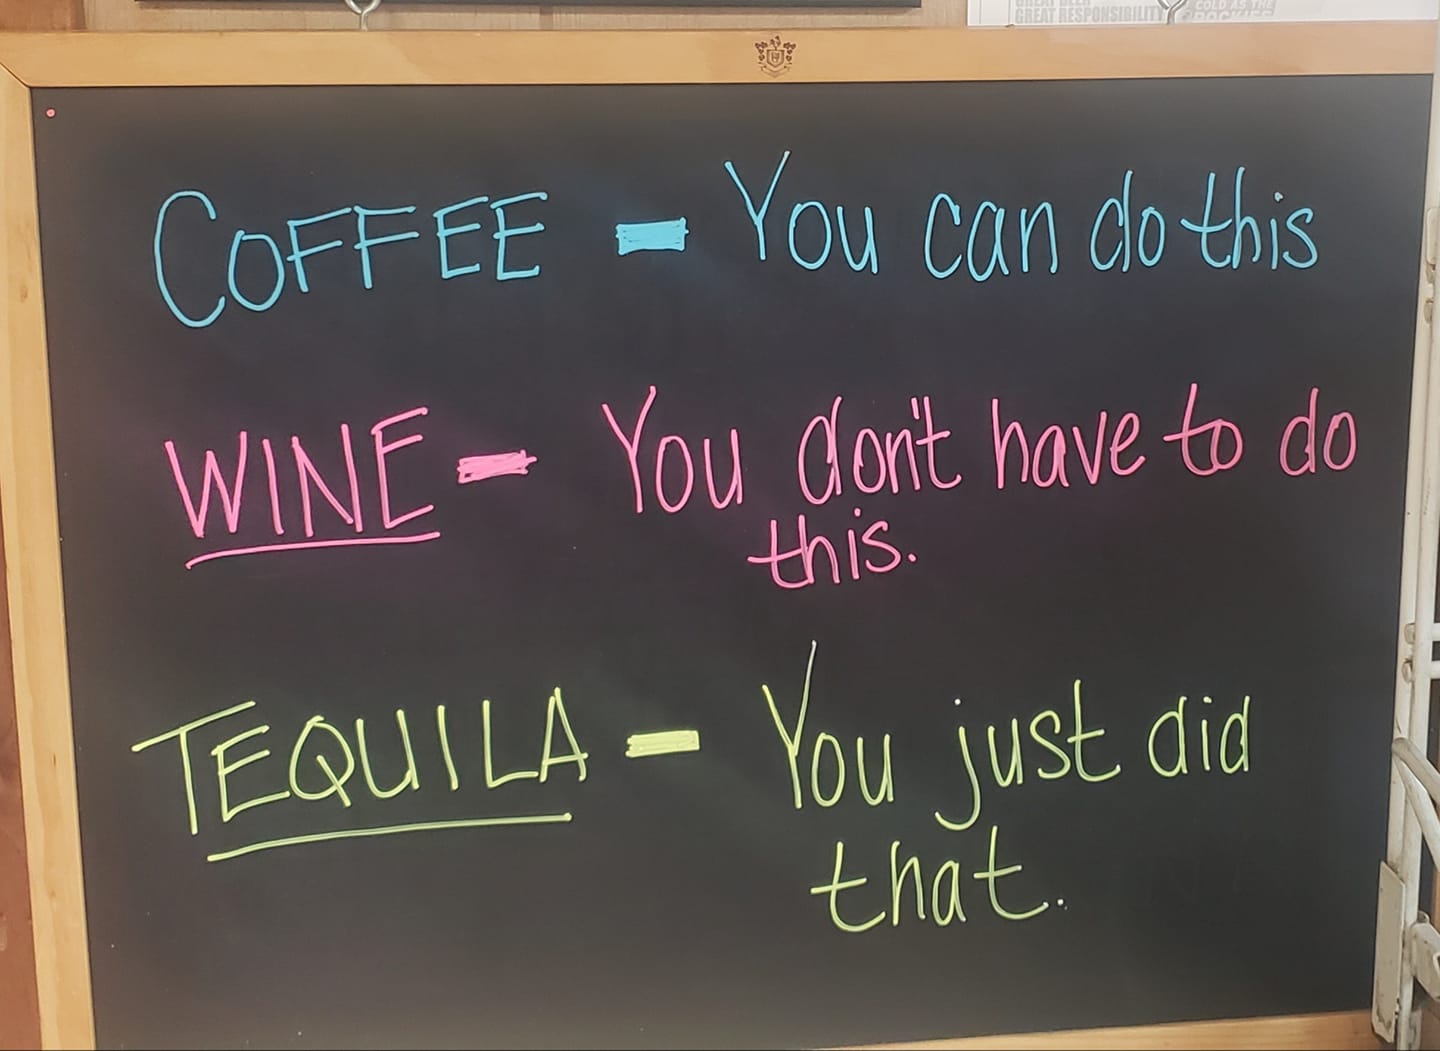 GREAT BEER
GREAT RESPONSIBILITY
COLD AS THE
ROCKIES
COFFEE - You can do this
WINE - You don't have to do
this.
TEQUILA - You just did
that.